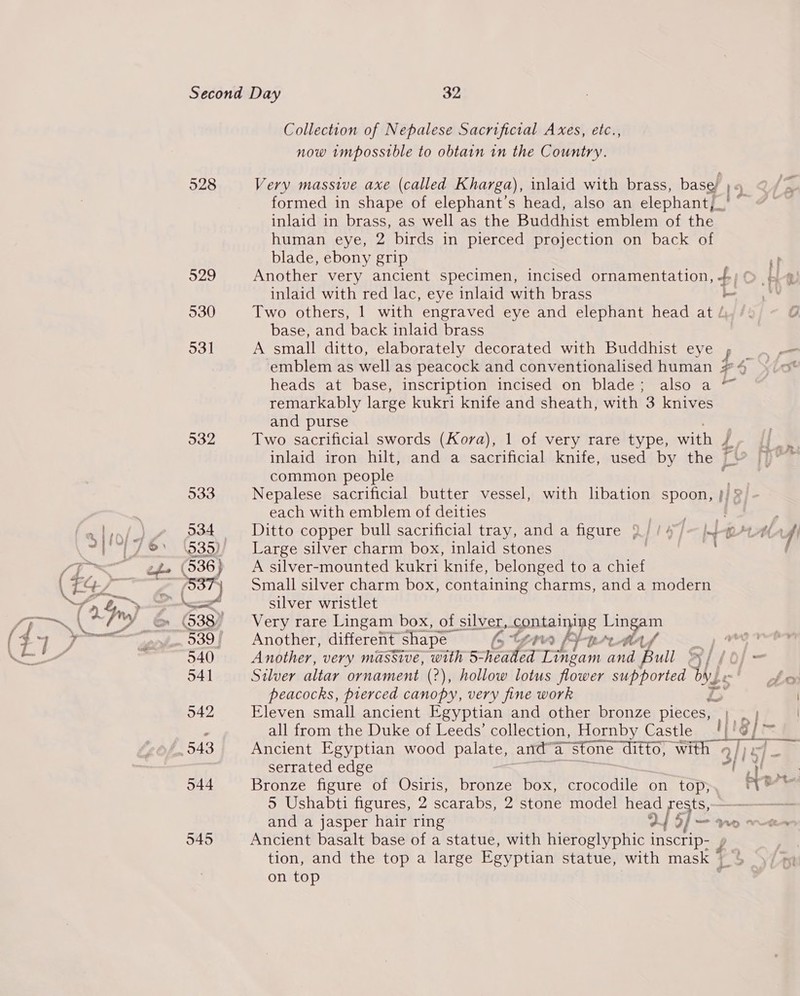 Second Day 32
Collection of Nepalese Sacrificial Axes, etc.,
now impossible to obtain in the Country.
528 Very massive axe (called Kharga), inlaid with brass, base
formed in shape of elephant's head, also an elephant
inlaid in brass, as well as the Buddhist emblem of the
human eye, 2 birds in pierced projection on back of
blade, ebony grip
529 Another very ancient specimen, incised ornamentation,
inlaid with red lac, eye inlaid with brass
530 Two others, 1 with engraved eye and elephant head at
base, and back inlaid brass
531 A small ditto, elaborately decorated with Buddhist eye
emblem as well as peacock and conventionalised human
heads at base, inscription incised on blade; also a
remarkably large kukri knife and sheath, with 3 knives
and purse
532 Two sacrificial swords (Kora), 1 of very rare type, with
inlaid iron hilt, and a sacrificial knife, used by the
common people
533 Nepalese sacrificial butter vessel, with libation spoon,
each with emblem of deities
534 Ditto copper bull sacrificial tray, and a figure
535 Large silver charm box, inlaid stones
536 A silver-mounted kukri knife, belonged to a chief
537 Small silver charm box, containing charms, and a modern
silver wristlet
538 Very rare Lingam box, of silver, containing Lingam
539 Another, different shape
540 Another, very massive, with 5-headed Lingam and Bull
541 Silver altar ornament (?), hollow lotus flower supported by
peacocks, pierced canopy, very fine work
542 Eleven small ancient Egyptian and other bronze pieces,
all from the Duke of Leeds' collection, Hornby Castle
543 Ancient Egyptian wood palate, and a stone ditto, with
serrated edge
544 Bronze figure of Osiris, bronze box, crocodile on top,
5 Ushabti figures, 2 scarabs, 2 stone model head rests,
and a jasper hair ring
545 Ancient basalt base of a statue, with hieroglyphic inscrip-
tion, and the top a large Egyptian statue, with mask
on top